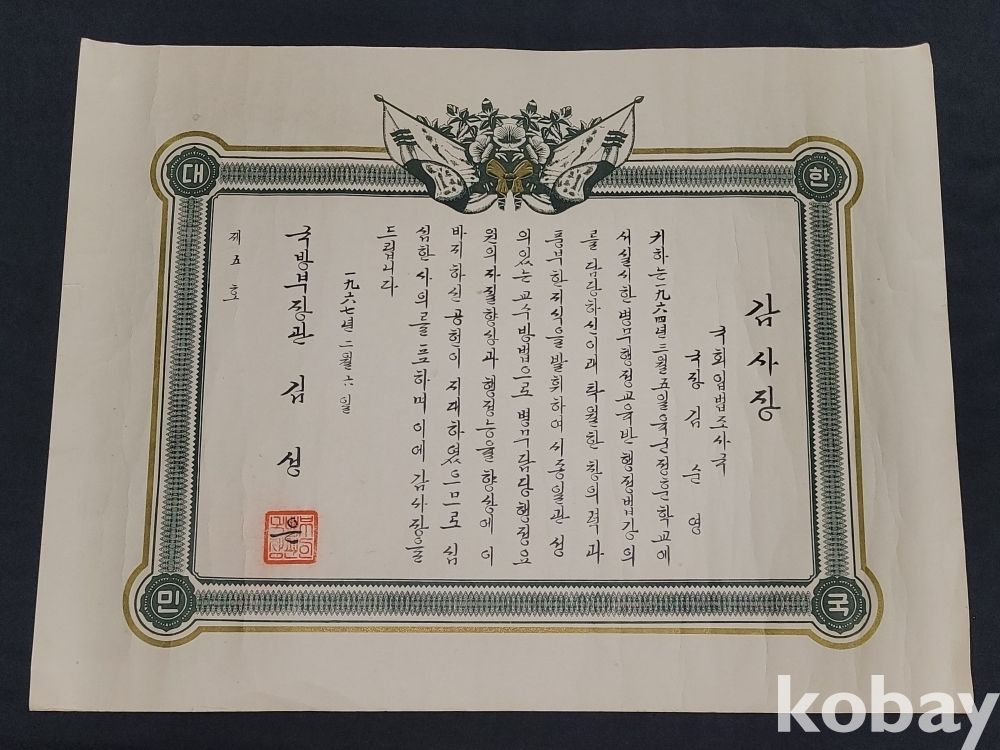 대한민국
감사장
국회입법조사국
국장 김순영
귀하는 一九六四년 三월 五일 육군정훈학교에
서 실시한 병무행정교육반 행정법강의
를 담당하신 이래 탁월한 창의력과
풍부한 지식을 발휘하여 시종일관 성
의있는 교수방법으로 병무담당행정요
원의 자질향상과 행정능률향상에 이
바지하신 공헌이 지대하였으므로 심
심한 사의를 표하며 이에 감사장을
드립니다
一九六七년 二월 六일
국방부장관 김성은
제 五 호
kobay